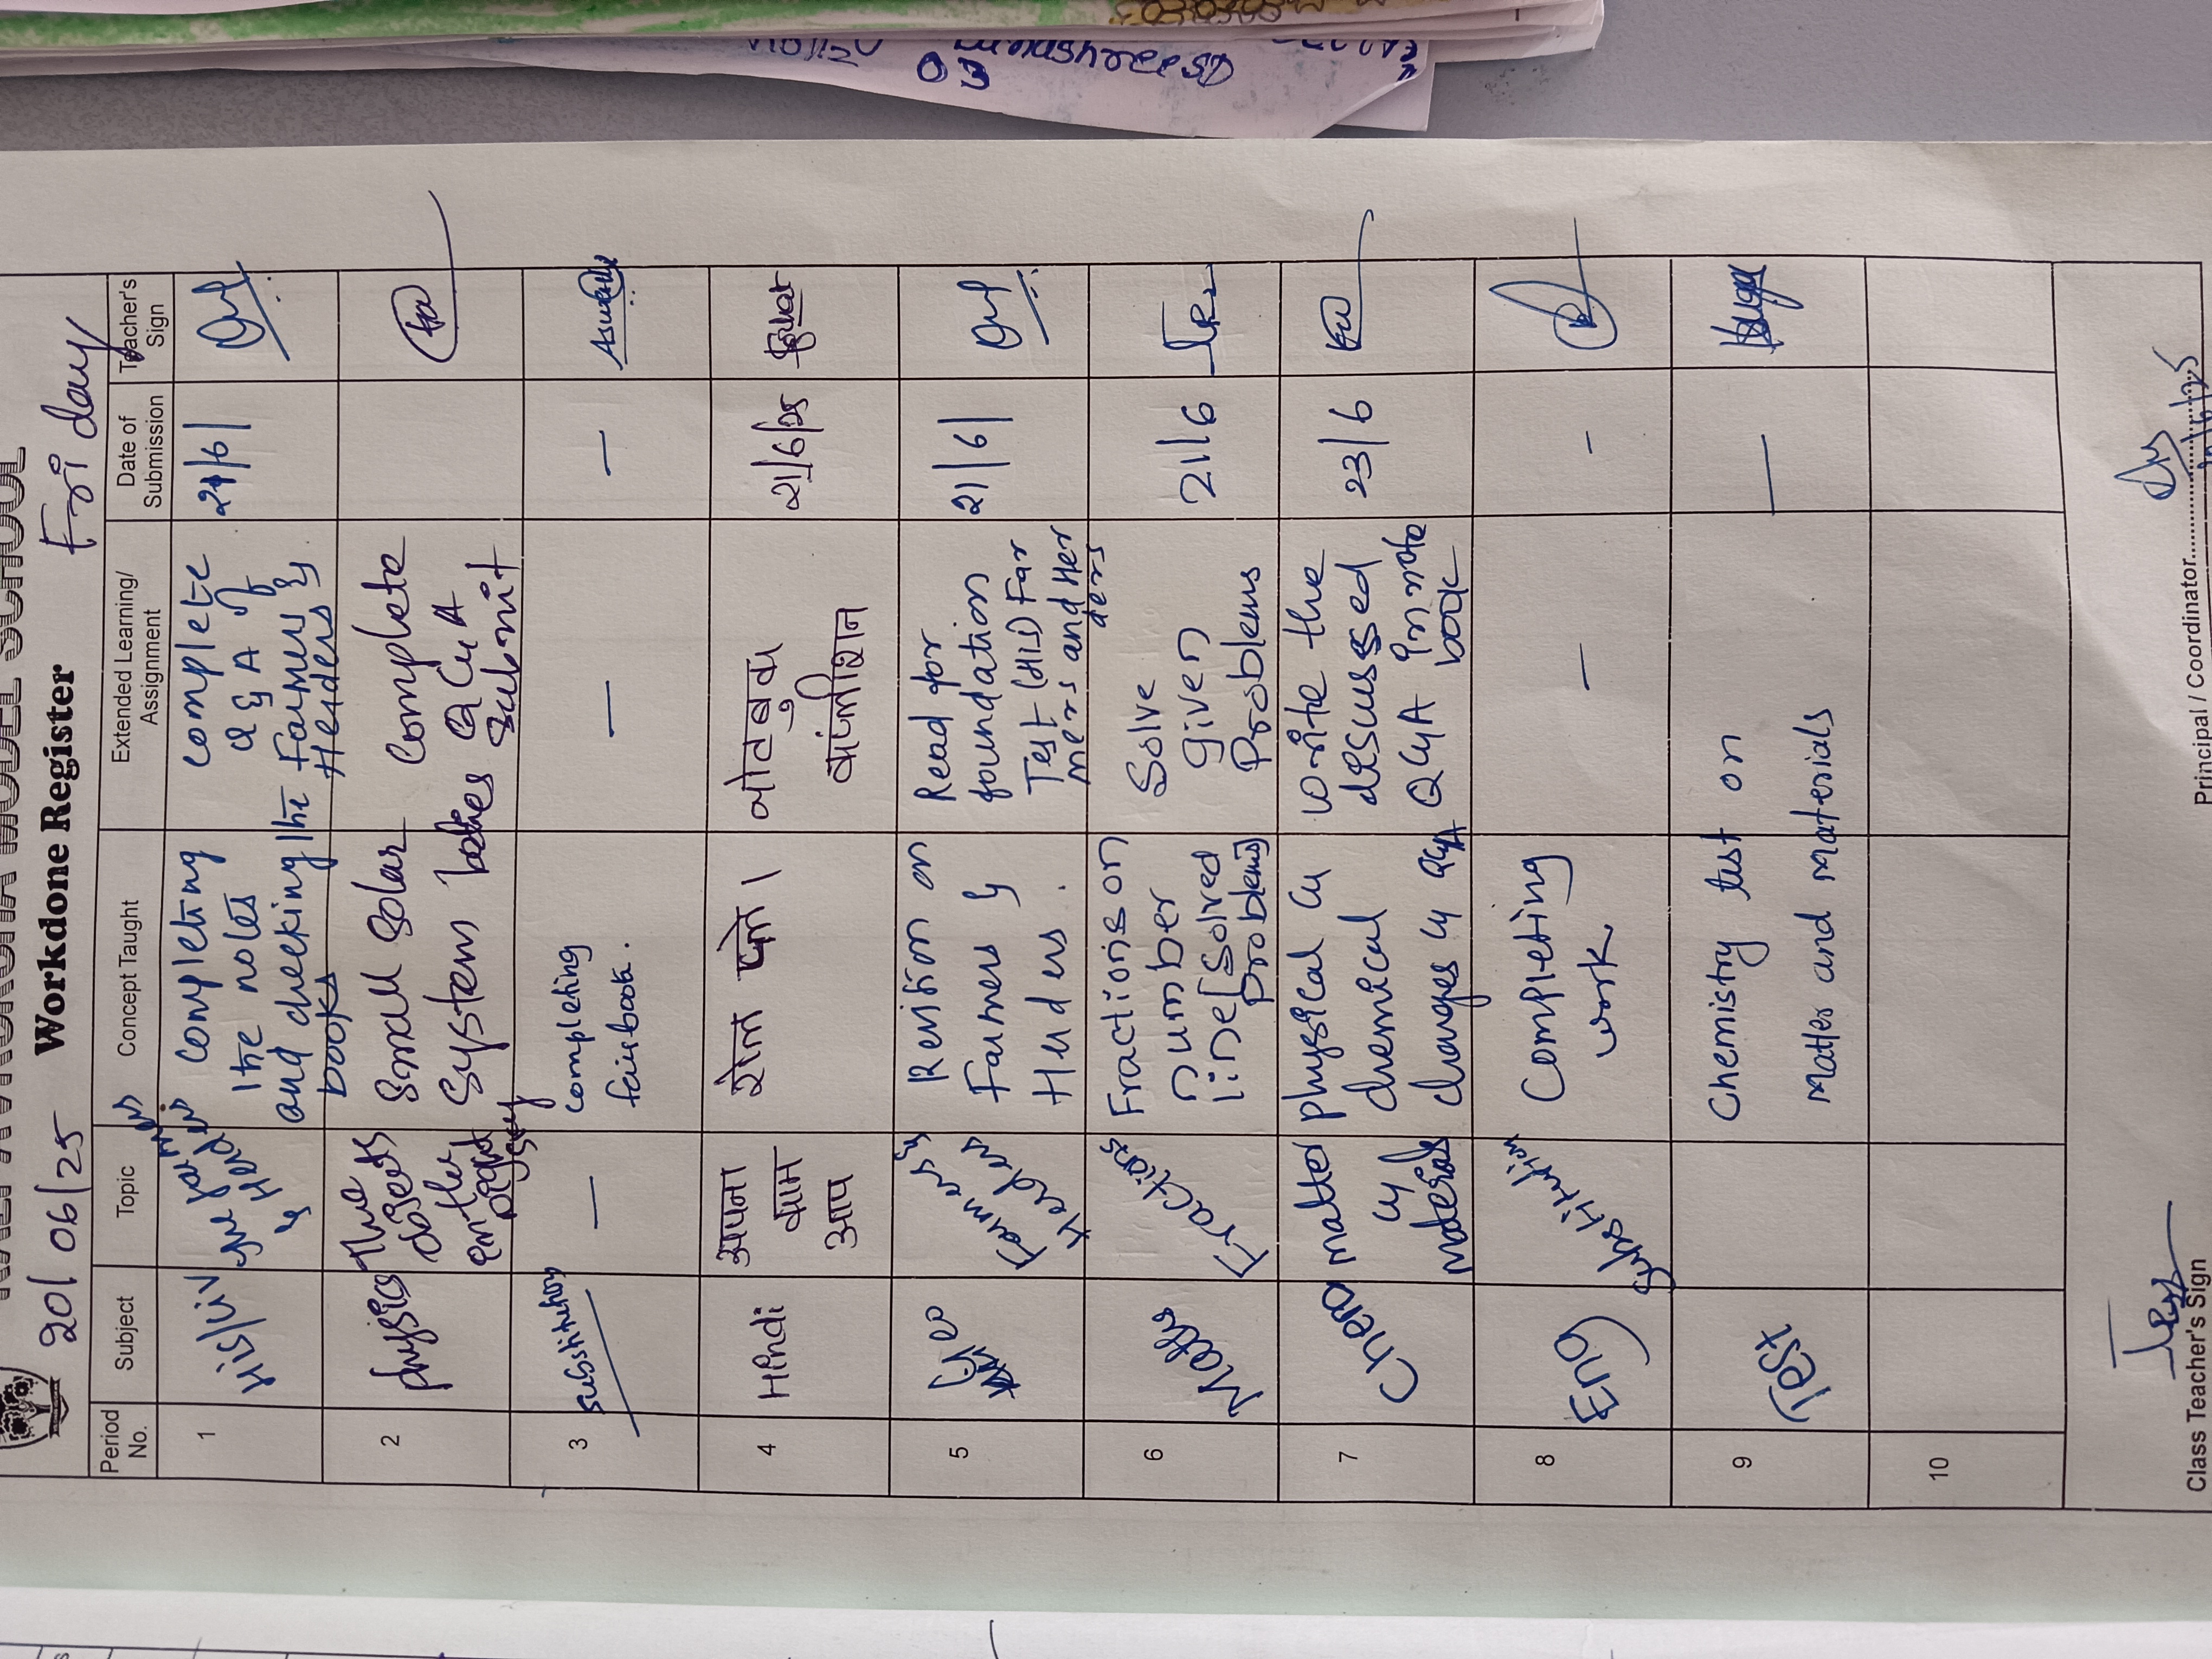 Workdone Register
20/06/25
Friday
Period No.
Subject
Topic
Concept Taught
Extended Learning/ Assignment
Date of Submission
Teacher's Sign
1
His/Civ
completing
the notes
and checking the
books
complete
Q & A of
Farmers &
Herders
21/6/
2
physics
The
objects
in the
Small Solar
System
Complete
notes Q & A
Submit
3
substitution
—
completing
fairbook.
—
—
4
Hindi
अपना
काम
आप
शेल पो।
नोटबुक
कंप्लीशन
21/6/25
5
Geo
Farmers &
Herders
Revision on
Farmers &
Herders.
Read for
foundation
Test (HIS) Far
mers and Her
ders
21/6/
6
Maths
Fractions
Fractions on
number
line [Solved
problems]
Solve
given
Problems
21/6
7
Chem
matter
&
materials
physical &
chemical
changes & Q&A
write the
descussed
Q & A in note
book
23/6
8
Eng
Substitution
Completing
work
—
-
9
Test
Chemistry test on
Matter and Materials
—
10
Class Teacher's Sign
Principal / Coordinator